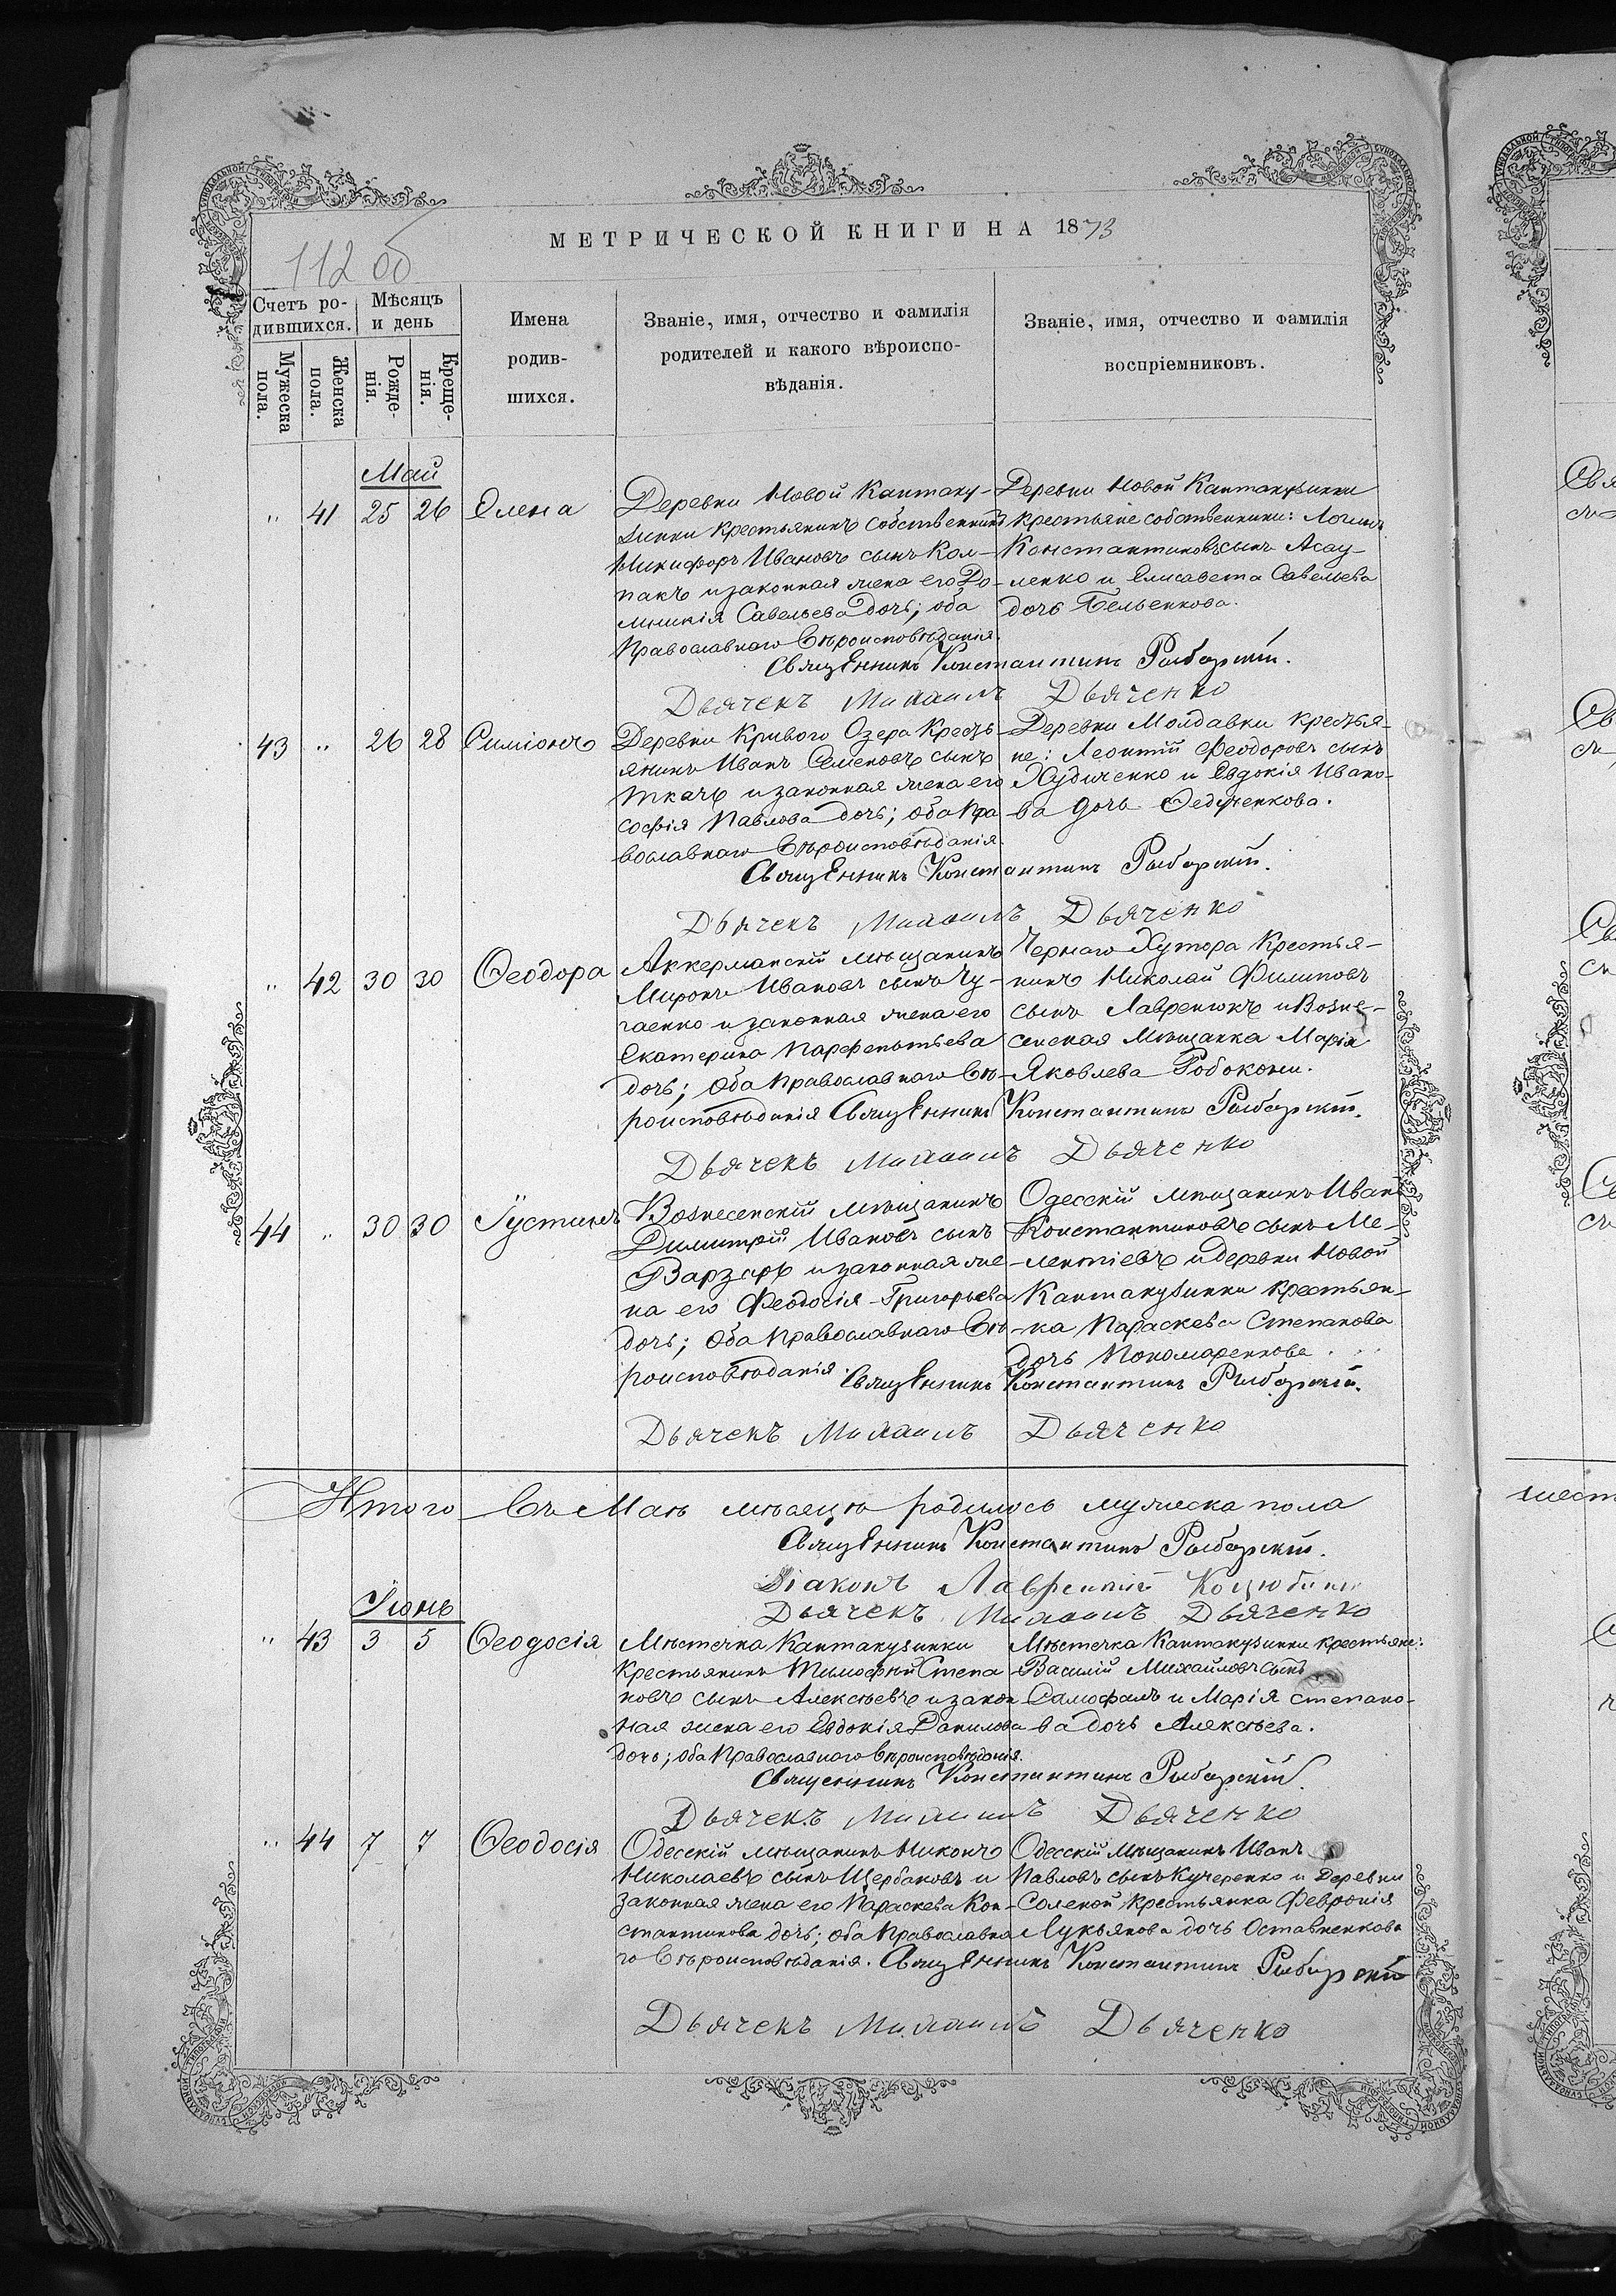 МЕТРИЧЕСКОЙ КНИГИ НА 1873
112 об
Счетъ ро-
дившихся.
Мѣсяцъ
и день
Мужеска
пола.
Женска
пола.
Рожде-
нія.
Креще-
нія.
Имена
родив-
шихся.
Званіе, имя, отчество и фамилія
родителей и какого вѣроиспо-
вѣданія.
Званіе, имя, отчество и фамилія
воспріемниковъ.
Май
" 41 25 26 Елена
Деревни Новой Кантаку-
зинки крестьянинъ собственникъ
Никифоръ Ивановъ сынъ Кол-
пакъ и законная жена его До-
мникія Савельева дочь; оба
Православнаго вѣроисповѣданія.
Деревни Новой Кантакузинки
крестьяне собственники: Логинъ
Константиновъ сынъ Асау-
ленко и Елисавета Савельева
дочь Бельенкова.
Священникъ Константинъ Рыбарскій.
Дьячекъ Михаилъ Дьяченко
43 " 26 28 Симіонъ
Деревни Кривого Озера Кресть-
янинъ Иванъ Семеновъ сынъ
Ткачъ и законная жена его
Софія Павлова дочь; оба Пра
вославнаго вѣроисповѣданія.
Деревни Молдавки крестья-
не: Леонтій Феодоровъ сынъ
Худиченко и Евдокія Ивано-
ва дочь
Священникъ Константинъ Рыбарскій.
Дьячекъ Михаилъ Дьяченко
" 42 30 30 Ѳеодора
Аккерманскій мѣщанинъ
Миронъ Ивановъ сынъ Чу-
гаенко и законная жена его
Екатерина Парфентьева
дочь; оба Православнаго вѣ-
роисповѣданія
Чернаго Хутора Крестья-
нинъ Николай Филиповъ
сынъ Лавренюкъ и Возне-
сенская Мѣщанка Марія
Яковлева Робоконь.
Священникъ Константинъ Рыбарскій.
Дьячекъ Михаилъ Дьяченко
44 " 30 30 Іустинъ
Вознесенскій мѣщанинъ
Димитрій Ивановъ сынъ
Варзарь и законная же
на его Феодосія Григорьева
дочь; оба Православнаго вѣ-
роисповѣданія.
Одесскій мѣщанинъ Иванъ
Константиновъ сынъ Ме-
лентіевъ и деревни Новой
Кантакузинки крестьян-
ка Параскева Степанова
дочь Пономаренкова
Священникъ Константинъ Рыбарскій.
Дьячекъ Михаилъ Дьяченко
Итого въ Маѣ мѣсяцѣ родилось мужеска пола
Священникъ Константинъ Рыбарскій.
Діаконъ Лаврентій
Дьячекъ Михаилъ Дьяченко
Іюнь
" 43 3 5 Ѳеодосія
Мѣстечка Кантакузинки
Крестьянинъ Тимофѣй Степа
новъ сынъ Алексѣевъ и закон
ная жена его Евдокія Данилова
дочь; оба Православнаго вѣроисповѣданія.
Мѣстечка Кантакузинки крестьяне:
Василій Михайловъ сынъ
Самофалъ и Марія Степано-
ва дочь Алексѣева.
Священникъ Константинъ Рыбарскій.
Дьячекъ Михаилъ Дьяченко
" 44 7 7 Ѳеодосія
Одесскій мѣщанинъ Никонъ
Николаевъ сынъ Щербаковъ и
законная жена его Параскева Кон-
стантинова дочь; оба Православна
го вѣроисповѣданія.
Одесскій Мѣщанинъ Иванъ
Павловъ сынъ Кучеренко и деревни
Соленой крестьянка Февронія
Лукьянова дочь Оставненкова
Священникъ Константинъ Рыбарскій
Дьячекъ Михаилъ Дьяченко